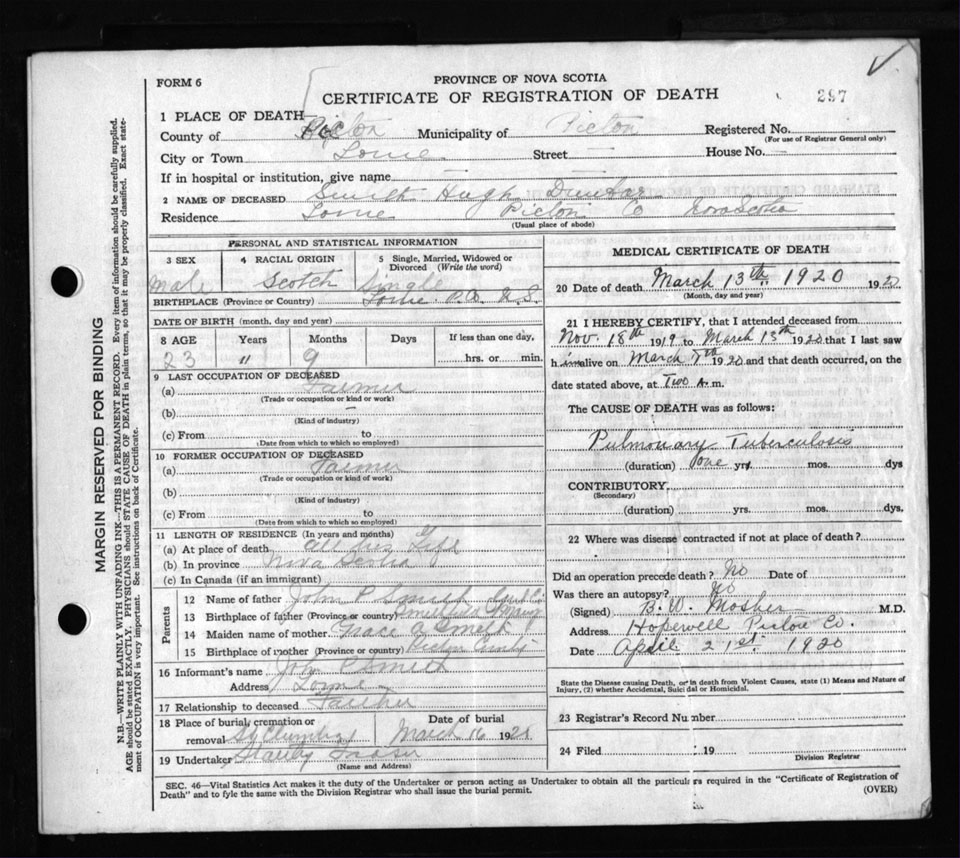 FORM 6
PROVINCE OF NOVA SCOTIA
CERTIFICATE OF REGISTRATION OF DEATH
297
1 PLACE OF DEATH
County of Pictou Municipality of Pictou Registered No.
(For use of Registrar General only)
City or Town Lorne Street — House No. —
If in hospital or institution, give name
2 NAME OF DECEASED Smith Hugh Dunbar
Residence Lorne Pictou Co Nova Scotia
(Usual place of abode)
PERSONAL AND STATISTICAL INFORMATION
3 SEX Male
4 RACIAL ORIGIN Scotch
5 Single, Married, Widowed or Divorced (Write the word) Single
BIRTHPLACE (Province or Country) Lorne P.Co N.S.
DATE OF BIRTH (month, day and year)
8 AGE Years Months Days If less than one day,
23 " 9 hrs. or min.
9 LAST OCCUPATION OF DECEASED
(a) Farmer
(Trade or occupation or kind or work)
(b) —
(Kind of industry)
(c) From to
(Date from which to which so employed)
10 FORMER OCCUPATION OF DECEASED
(a) Farmer
(Trade or occupation or kind or work)
(b)
(Kind of industry)
(c) From to
(Date from which to which so employed)
11 LENGTH OF RESIDENCE (In years and months)
(a) At place of death all his Life
(b) In province Nova Scotia
(c) In Canada (if an immigrant)
Parents
12 Name of father John P Smith
13 Birthplace of father (Province or country)
14 Maiden name of mother Grace
15 Birthplace of mother (Province or country)
16 Informant's name John P Smith
Address Lorne
17 Relationship to deceased Father
18 Place of burial, cremation or removal St Clumba
Date of burial March 16 192
19 Undertaker Fraser
(Name and Address)
MEDICAL CERTIFICATE OF DEATH
20 Date of death March 13th 1920 192
(Month, day and year)
21 I HEREBY CERTIFY, that I attended deceased from
Nov. 18th 1919 to March 13th 1920 that I last saw
h im alive on March 1920 and that death occurred, on the
date stated above, at Two A. m.
The CAUSE OF DEATH was as follows:
Pulmonary Tuberculosis
(duration) one yrs mos. dys
CONTRIBUTORY
(Secondary)
(duration) yrs. mos. dys.
22 Where was disease contracted if not at place of death?
Did an operation precede death? No Date of
Was there an autopsy? No
(Signed) B. W. Mosher M.D.
Address Hopewell Pictou Co.
Date April 21st. 1920
State the Disease causing Death, or in death from Violent Causes, state (1) Means and Nature of
Injury, (2) whether Accidental, Suicidal or Homicidal.
23 Registrar's Record Number
24 Filed 19
Division Registrar
SEC. 46—Vital Statistics Act makes it the duty of the Undertaker or person acting as Undertaker to obtain all the particulars required in the "Certificate of Registration of
Death" and to fyle the same with the Division Registrar who shall issue the burial permit.
(OVER)
MARGIN RESERVED FOR BINDING
N.B.—WRITE PLAINLY WITH UNFADING INK—THIS IS A PERMANENT RECORD. Every item of information should be carefully supplied.
AGE should be stated EXACTLY. PHYSICIANS should STATE CAUSE OF DEATH in plain terms, so that it may be properly classified. Exact state-
ment of OCCUPATION is very important. See instructions on back of Certificate.